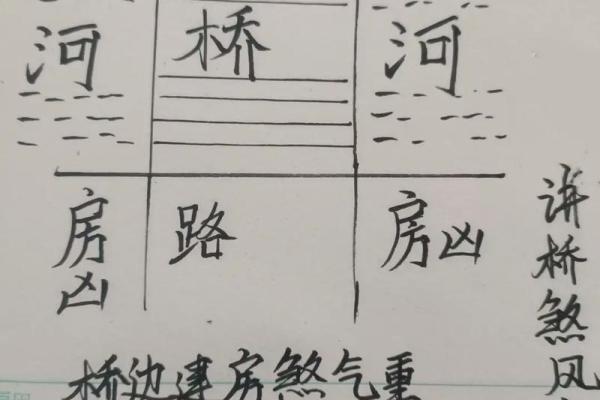 河 桥 河
房凶 路 房凶
桥边建房煞气重
讲桥煞风